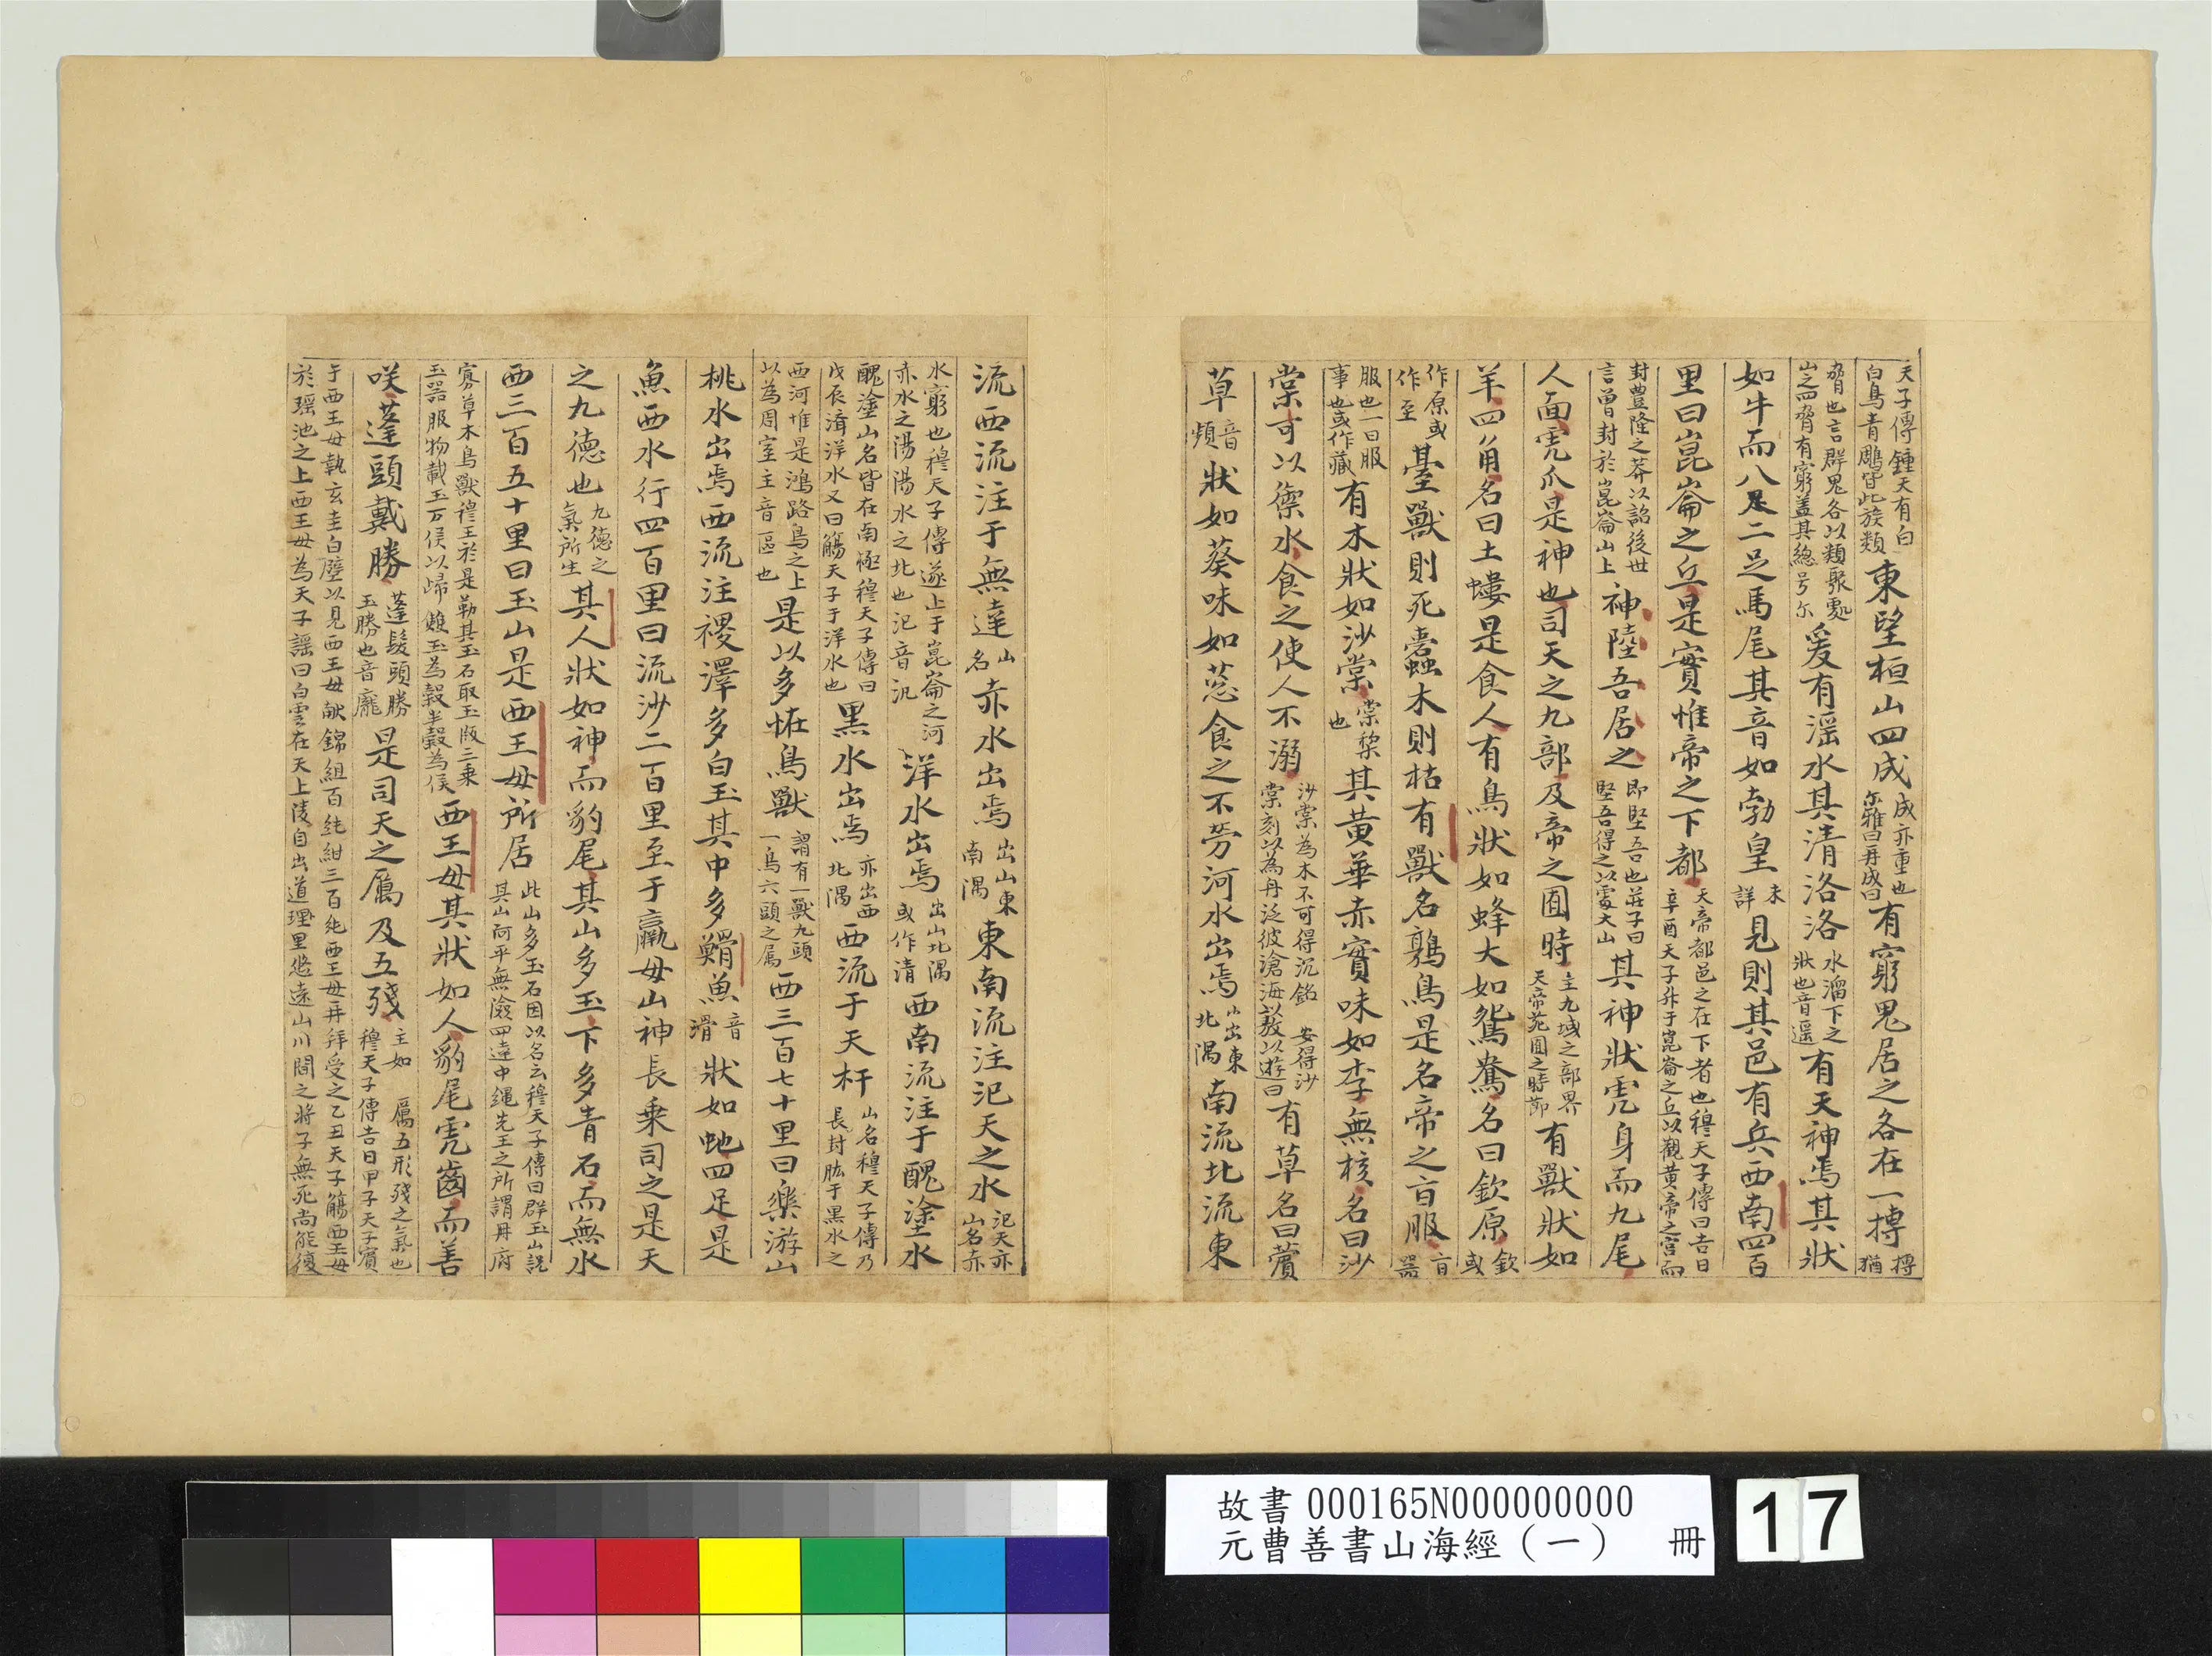 天子傳鍾天有白白鳥青鵰皆此族類東望桓山四成成亦重也尔雅曰再成曰有窮鬼居之各在一摶摶猶
脅也言群鬼各以類聚處山之四脅有窮蓋其總号尔爰有滛水其清洛洛水溜下之狀也音遥有天神焉其狀
如牛而八足二足馬尾其音如勃皇未詳見則其邑有兵西南四百
里曰崑崙之丘是實惟帝之下都天帝都邑之在下者也穆天子傳曰吉日辛酉天子升于崑崙之丘以觀黄帝之宫而
封豊隆之莽以詔後世言曾封於崑崙山上神陸吾居之即堅吾也莊子曰堅吾得之以處大山其神狀虎身而九尾
人面虎爪是神也司天之九部及帝之囿時主九域之部界天帝苑囿之時節有獸狀如
羊四角名曰土螻是食人有鳥狀如蜂大如鴛鴦名曰欽原欽或
作原或作至蠚獸則死蠚木則枯有獸名鶉鳥是名帝之百服百器
服也一曰服事也或作藏有木狀如沙棠棠梨也其黄華赤實味如李無核名曰沙
棠可以禦水食之使人不溺沙棠為木不可得沉銘 安得沙棠刻以為舟泛彼滄海以遨以遊曰有草名曰薲
草音頻狀如葵味如葱食之不勞河水出焉出東北隅南流北流東
流西流注于無達山名赤水出焉出山東南隅東南流注汜天之水汜天亦山名赤
水窮也穆天子傳遂止于崑崙之河赤水之陽陽水之北也汜音汎洋水出焉出山北隅或作清西南流注于醜塗水
醜塗山名皆在南極穆天子傳曰戊辰濟洋水又曰觴天子于洋水也黑水出焉亦出西北隅西流于天杅山名穆天子傳乃長封肱于黑水之
西河惟是鴻路鳥之上以為周室主音區也是以多恠鳥獸謂有一獸九頭一鳥六頭之属西三百七十里曰樂游山
桃水出焉西流注稷澤多白玉其中多䱻魚音滑狀如虵四足是
魚西水行四百里曰流沙二百里至于羸母山神長乘司之是天
之九德也九德之氣所生其人狀如神而豹尾其山多玉下多青石而無水
西三百五十里曰玉山是西王母所居此山多玉石因以名云穆天子傳曰群玉山訖其山阿平無險四達中繩先王之所謂冊府
寡草木鳥獸穆王於是勒其玉石取玉版三乗玉器服物載玉万侯以歸 雙玉為㲄半㲄為侯西王母其狀如人豹尾虎齒而善
咲蓬頭戴勝蓬髪頭勝玉勝也音龐是司天之厲及五殘主如 厲五形殘之氣也穆天子傳吉日甲子天子賓
于西王母執玄圭白璧以見西王母献錦組百純紺三百純西王母再拜受之乙丑天子觴西王母
於瑶池之上西王母為天子謡曰白雲在天上陵自出道理里悠遠山川間之將子無死尚能復
故書 000165N000000000
元曹善書山海經（一） 冊
17